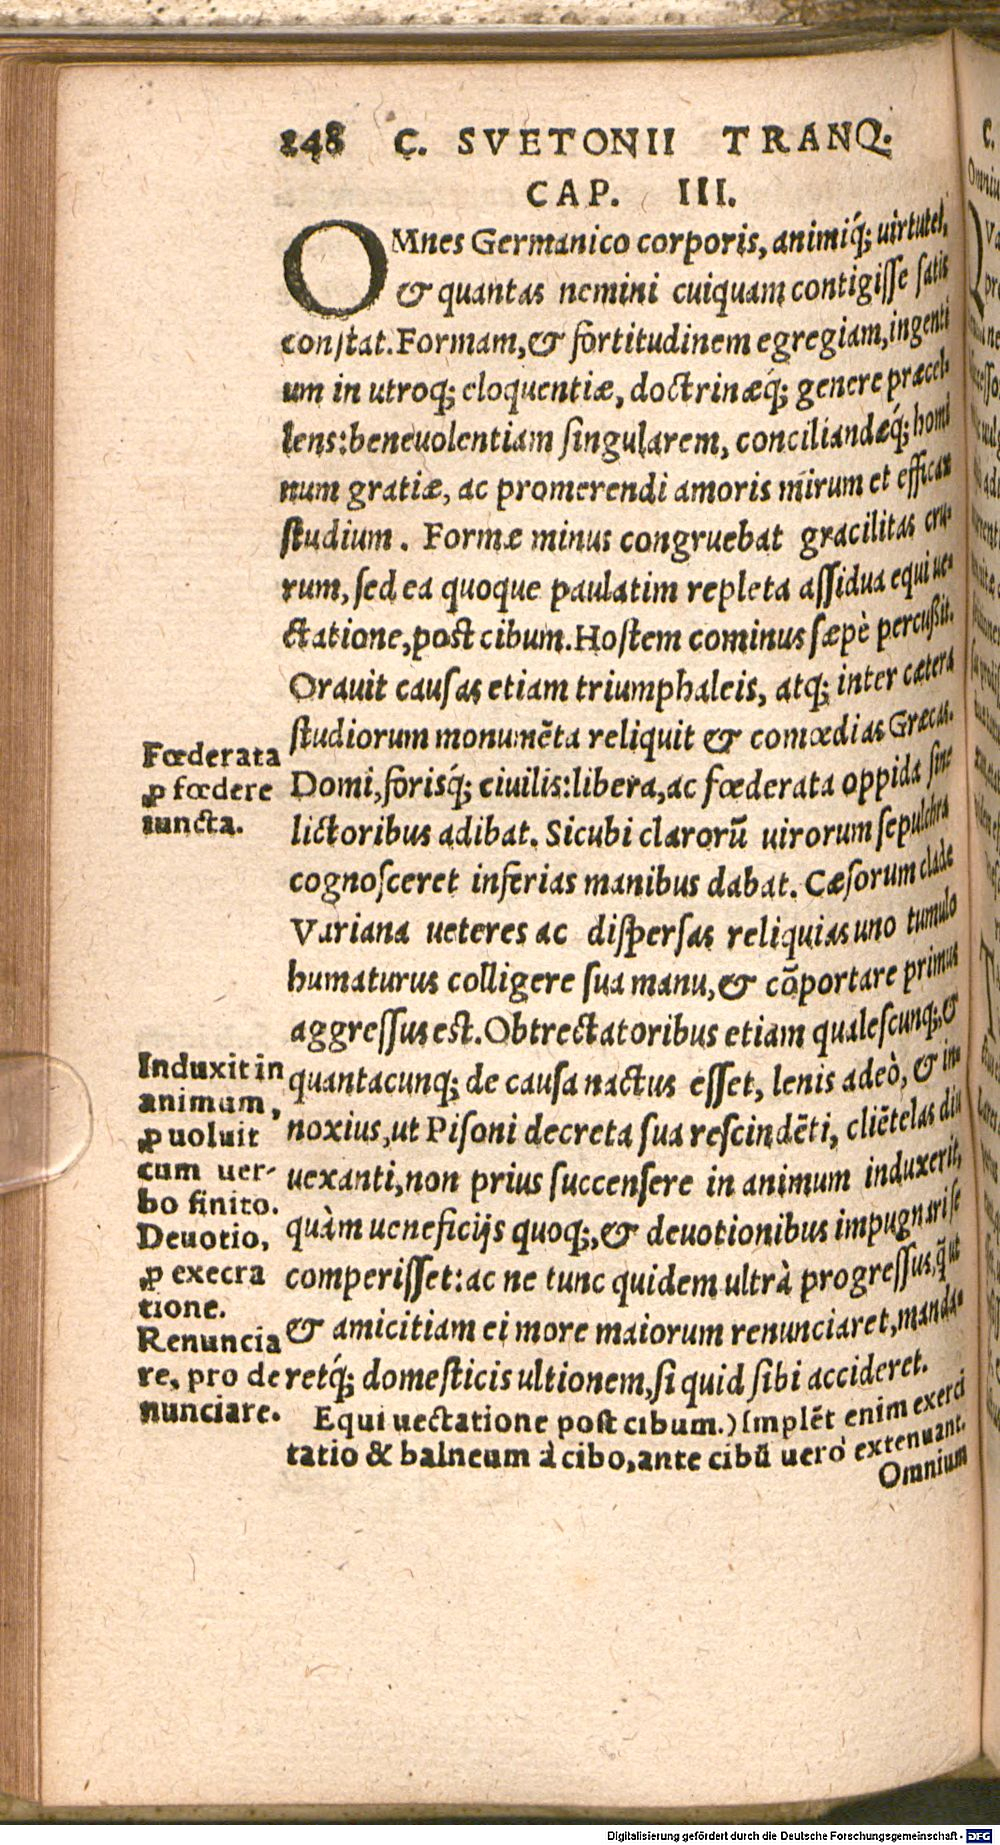 248 C. SVETONII TRANQ.
CAP. III.
OMnes Germanico corporis, animiq́; uirtutes,
& quantas nemini cuiquam contigisse satis
constat. Formam, & fortitudinem egregiam, ingenti
um in utroq; eloquentiæ, doctrinæq́; genere præcel-
lens: beneuolentiam singularem, conciliandæq́; homi
num gratiæ, ac promerendi amoris mirum et efficax
studium. Formæ minus congruebat gracilitas cru-
rum, sed ea quoque paulatim repleta assidua equi ue-
ctatione, post cibum. Hostem cominus sæpè percußit.
Orauit causas etiam triumphaleis, atq; inter cætera
studiorum monumẽta reliquit & comœdias Græcas.
Domi, forisq́; ciuilis: libera, ac fœderata oppida sine
lictoribus adibat. Sicubi clarorũ uirorum sepulchra
cognosceret inferias manibus dabat. Cæsorum clade
Variana ueteres ac dispersas reliquias uno tumulo
humaturus colligere sua manu, & cõportare primus
aggressus est. Obtrectatoribus etiam qualescunq;, &
quantacunq; de causa nactus esset, lenis adeò, & in-
noxius, ut Pisoni decreta sua rescindẽti, cliẽtelas diu
uexanti, non prius succensere in animum induxerit,
quàm ueneficijs quoq;, & deuotionibus impugnari se
comperisset: ac ne tunc quidem ultrà progressus, q̃ ut
& amicitiam ei more maiorum renunciaret, manda-
retq́; domesticis ultionem, si quid sibi accideret.
Equi uectatione post cibum.) Implẽt enim exerci
tatio & balneum à cibo, ante cibũ uero extenuant.
Omnium
Fœderata
ꝓ fœdere
iuncta.
Induxit in
animum,
ꝓ uoluit
cum uer-
bo finito.
Deuotio,
ꝓ execra
tione.
Renuncia
re, pro de
nunciare.
Digitalisierung gefördert durch die Deutsche Forschungsgemeinschaft - DFG